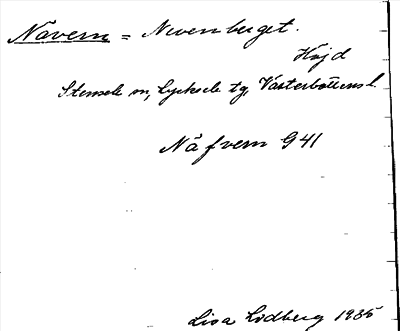 Nåvern = Nevernberget.
Höjd
Stensele sn, Lycksele tg, Västerbottens l.
Nåfvern G 41
Lisa Lidberg 1935